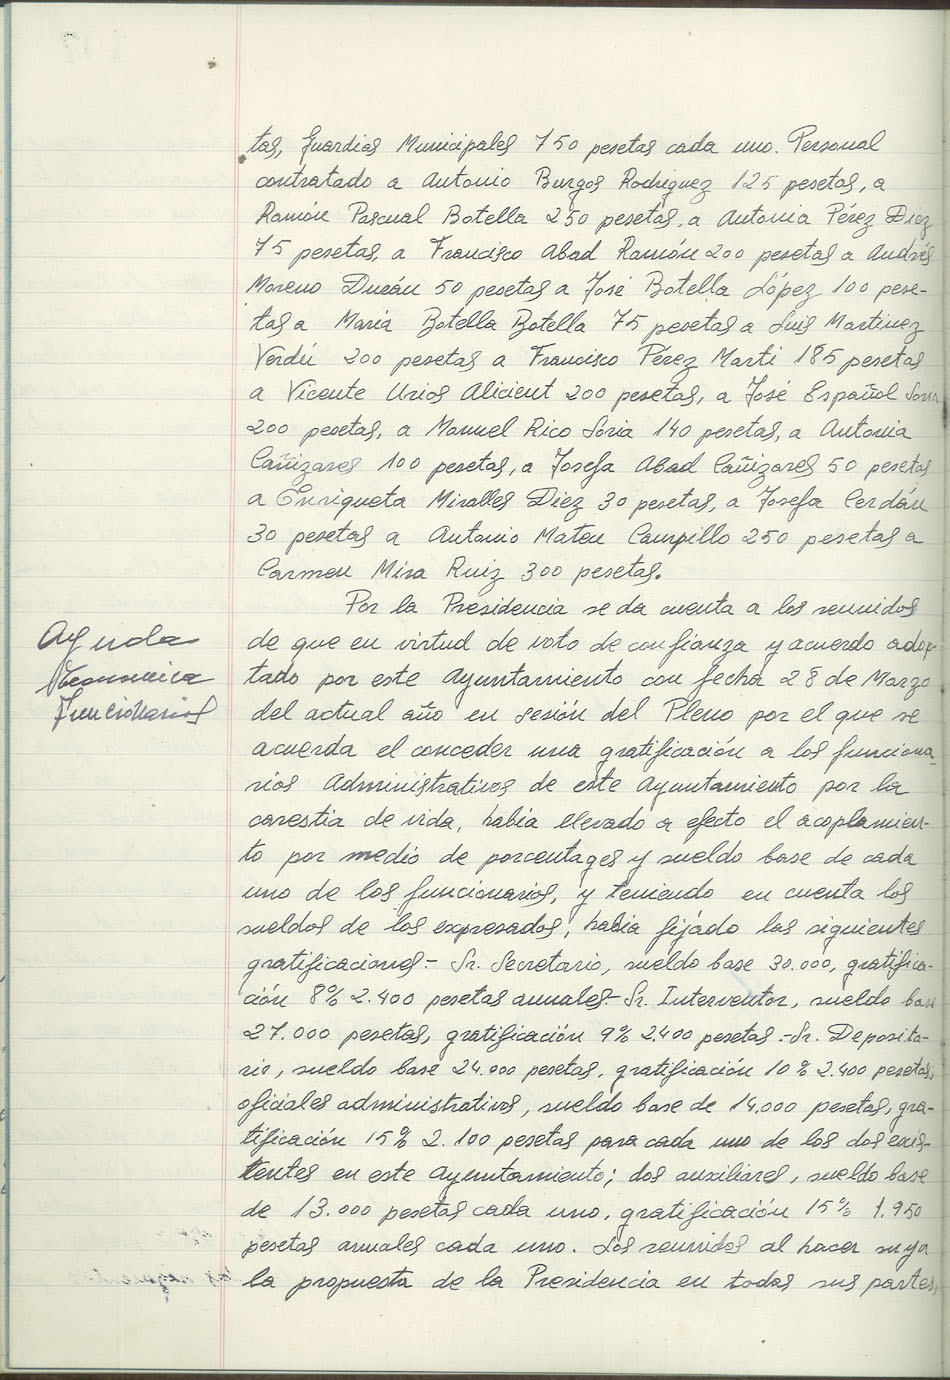 tas, Guardias Municipales 750 pesetas cada uno. Personal
contratado a Antonio Burgos Rodriguez 125 pesetas, a
Ramón Pascual Botella 250 pesetas, a Antonia Pérez Diez
75 pesetas, a Francisco Abad Ramón 200 pesetas a Andrés
Moreno Durán 50 pesetas a José Botella López 100 pese-
tas a Maria Botella Botella 75 pesetas a Luis Martinez
Verdú 200 pesetas a Francisco Pérez Marti 185 pesetas
a Vicente Urios Alicient 200 pesetas, a José Español Soria
200 pesetas, a Manuel Rico Soria 140 pesetas, a Antonia
Cañizares 100 pesetas, a Josefa Abad Cañizares 50 pesetas
a Enriqueta Miralles Diez 30 pesetas, a Josefa Cerdán
30 pesetas a Antonio Mateu Campillo 250 pesetas a
Carmen Mira Ruiz 300 pesetas.
Ayuda
Economica
Funcionarios
Por la Presidencia se da cuenta a los reunidos
de que en virtud de voto de confianza y acuerdo adop-
tado por este Ayuntamiento con fecha 28 de Marzo
del actual año en sesión del Pleno por el que se
acuerda el conceder una gratificación a los funciona-
rios Administrativos de este Ayuntamiento por la
carestia de vida, habia llevado a efecto el acoplamien-
to por medio de porcentages y sueldo base de cada
uno de los funcionarios, y teniendo en cuenta los
sueldos de los expresados, habia fijado las siguientes
gratificaciones:- Sr. Secretario, sueldo base 30.000, gratifica-
ción 8% 2.400 pesetas anuales.- Sr. Interventor, sueldo base
27.000 pesetas, gratificación 9% 2.400 pesetas.- Sr. Deposita-
rio, sueldo base 24.000 pesetas, gratificación 10% 2.400 pesetas;
oficiales administrativos, sueldo base de 14.000 pesetas, gra-
tificación 15% 2.100 pesetas para cada uno de los dos exis-
tentes en este Ayuntamiento; dos auxiliares, sueldo base
de 13.000 pesetas cada uno, gratificación 15% 1.950
pesetas anuales cada uno. Los reunidos al hacer suya
la propuesta de la Presidencia en todas sus partes,